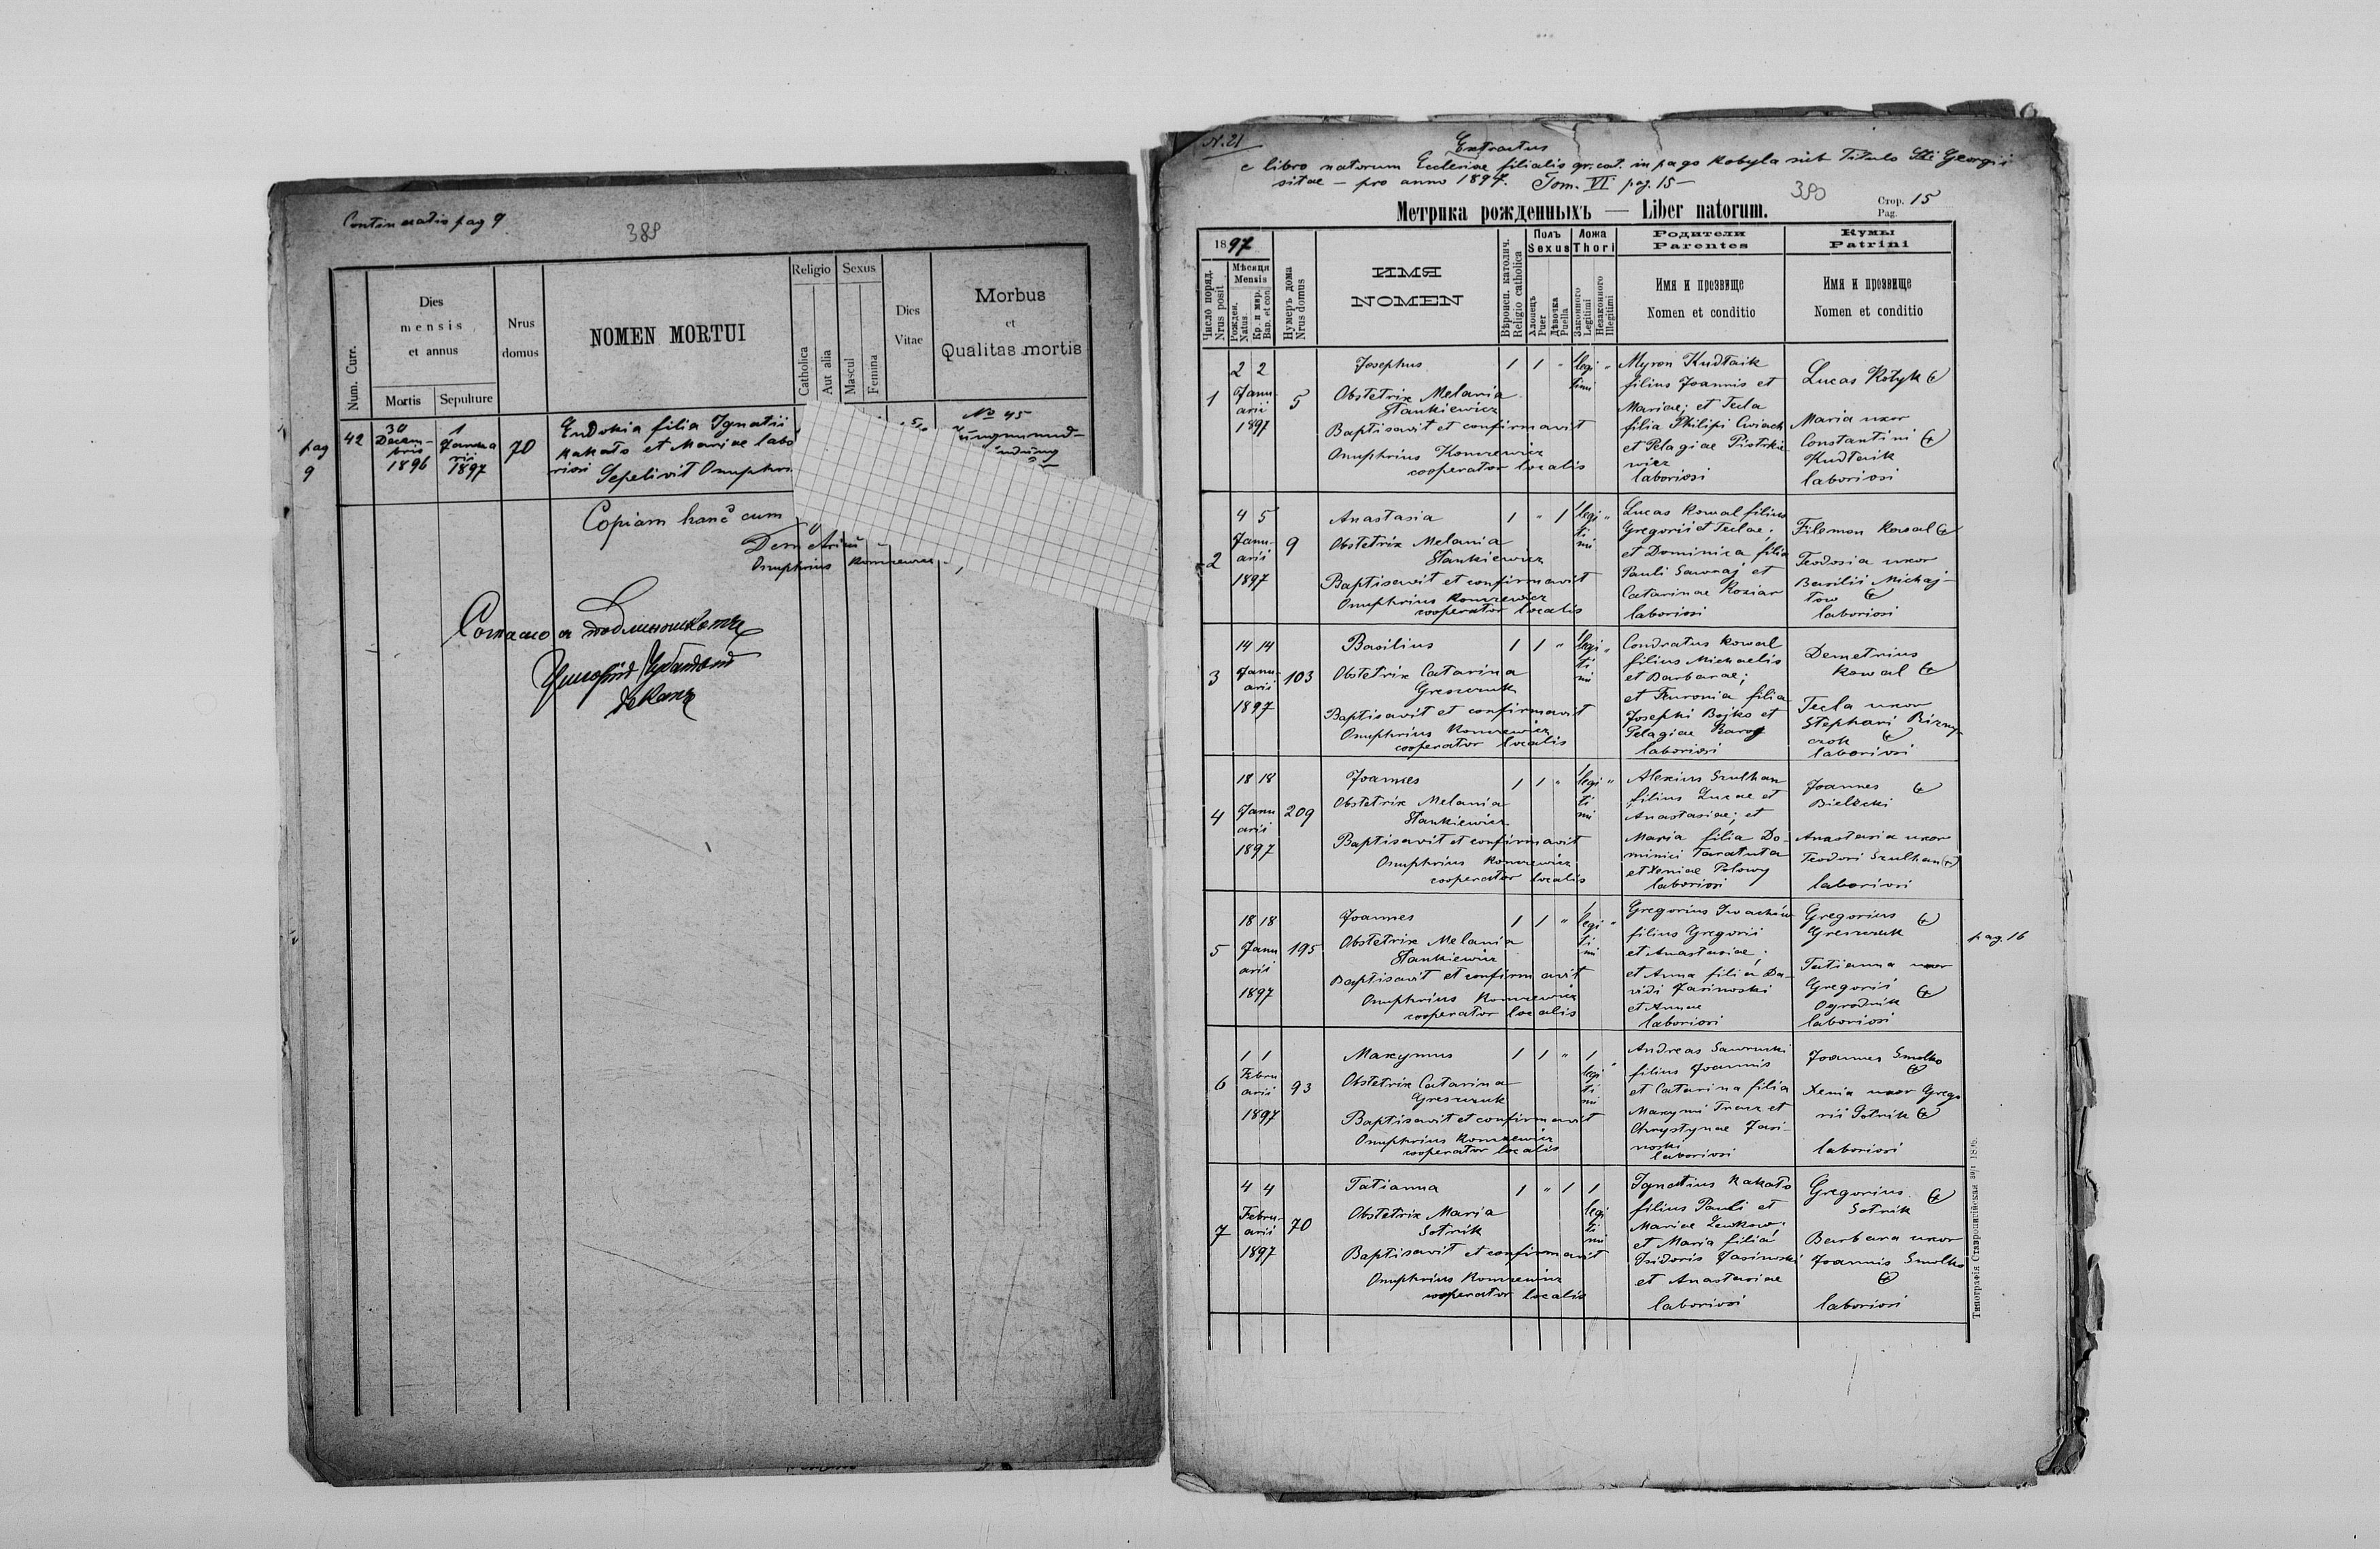 Continuatio pag 9
389
Num. Curr.
Dies
mensis
et annus
Mortis
Sepulture
Nrus
domus
NOMEN MORTUI
Religio
Catholica
Aut alia
Sexus
Mascul
Femina
Dies
Vitae
Morbus
et
Qualitas mortis
pag
9
42
30
Decem-
bris
1896
1
Janua
rii
1897
70
Eudokia filia Ignatii
Kakało et Mariae labo
riosi
Sepelivit Onuphri
No 45
Copiam hanc cum
Demetrius
Onuphrius Komzewicz
N. 21
Extractus
e libro natorum Ecclesiae filialis gr. cat. in pago Kobyla sub Titulo Sti Georgii
sitae — pro anno 1897. Tom. VI pag. 15 —
390
Метрика рожденныхъ — Liber natorum.
Стор. 15
Pag.
1897
Число поряд.
Nrus posit.
Мѣсяця
Mensis
Рожден.
Natus
Кр. и мvр.
Bap. et con.
Нумеръ дома
Nrus domus
ИМЯ
NOMEN
Вѣроисп. католич.
Religio catholica
Полъ
Sexus
Хлопецъ
Puer
Дѣвочка
Puella
Ложа
Thori
Законного
Legitimi
Незаконного
Illegitimi
Родители
Parentes
Имя и прозвище
Nomen et conditio
Кумы
Patrini
Имя и прозвище
Nomen et conditio
1
2 2
Janu-
arii
1897
5
Josephus
Obstetrix Melania
Stankiewicz
Baptisavit et confirmavit
Onuphrius Komzewicz
cooperator localis
1 1 "
1
legi "
timi
Myron Kudłaik
filius Joannis et
Mariae; et Tecla
filia Philipi Cwiach
et Pelagiae Piotrkie
wicz
laboriosi
Lucas Kotyk
Maria uxor
Constantini
Kudłaik
laboriosi
2
4 5
Janu-
arii
1897
9
Anastasia
Obstetrix Melania
Stankiewicz
Baptisavit et confirmavit
Onuphrius Komzewicz
cooperator localis
1 " 1
1
legi "
ti
mi
Lucas Kowal filius
Gregorii et Teclae;
et Dominica filia
Pauli Sawczaj et
Catarinae Koziar
laboriosi
Filemon Kowal
Teodosia uxor
Basilii Michaj-
low
laboriosi
3
14 14
Janu-
arii
1897
103
Basilius
Obstetrix Catarina
Greszczuk
Baptisavit et confirmavit
Onuphrius Komzewicz
cooperator localis
1 1 "
1
legi "
ti
mi
Condratus Kowal
filius Michaelis
et Barbarae;
et Feuronia filia
Josephi Bojko et
Pelagiae
laboriosi
Demetrius
Kowal
Tecla uxor
Stephani Bizny
czok
laboriosi
4
18 18
Janu
arii
1897
209
Joannes
Obstetrix Melania
Stankiewicz
Baptisavit et confirmavit
Onuphrius Komzewicz
cooperator localis
1 1 "
1
legi "
ti
mi
Alexius Szulhan
filius Lucae et
Anastasiae; et
Maria filia Do-
minici Taratuta
et Xeniae Polowy
laboriosi
Joannes
Bielecki
Anastasia uxor
Teodori Szulhan
laboriosi
5
18 18
Janu
arii
1897
195
Joannes
Obstetrix Melania
Stankiewicz
Baptisavit et confirmavit
Onuphrius Komzewicz
cooperator localis
1 1 "
1
legi "
ti
mi
Gregorius Iwachów
filius Gregorii
et Anastasiae;
et Anna filia Da-
vidi Jasinoski
et Annae
laboriosi
Gregorius
Greszczuk
Tatianna uxor
Gregorii
Ogrodnik
laboriosi
pag. 16
6
1 1
Febru
arii
1897
93
Maxymus
Obstetrix Catarina
Greszczuk
Baptisavit et confirmavit
Onuphrius Komzewicz
cooperator localis
1 1 " 1
legi "
ti
mi
Andreas Sawrucki
filius Joannis
et Catarina filia
Maxymi Tracz et
Chrystynae Jasi-
noski
laboriosi
Joannes Smolko
Xenia uxor Grego
rii Sotnik
laboriosi
7
4 4
Febru-
arii
1897
70
Tatianna
Obstetrix Maria
Sotnik
Baptisavit et confirmavit
Onuphrius Komzewicz
cooperator localis
1 " 1 1
legi
ti
mi
Ignatius Kakało
filius Pauli et
Mariae Lewkow;
et Maria filia
Isidoris Jasinoski
et Anastasiae
laboriosi
Gregorius
Sotnik
Barbara uxor
Joannis Smolko
laboriosi